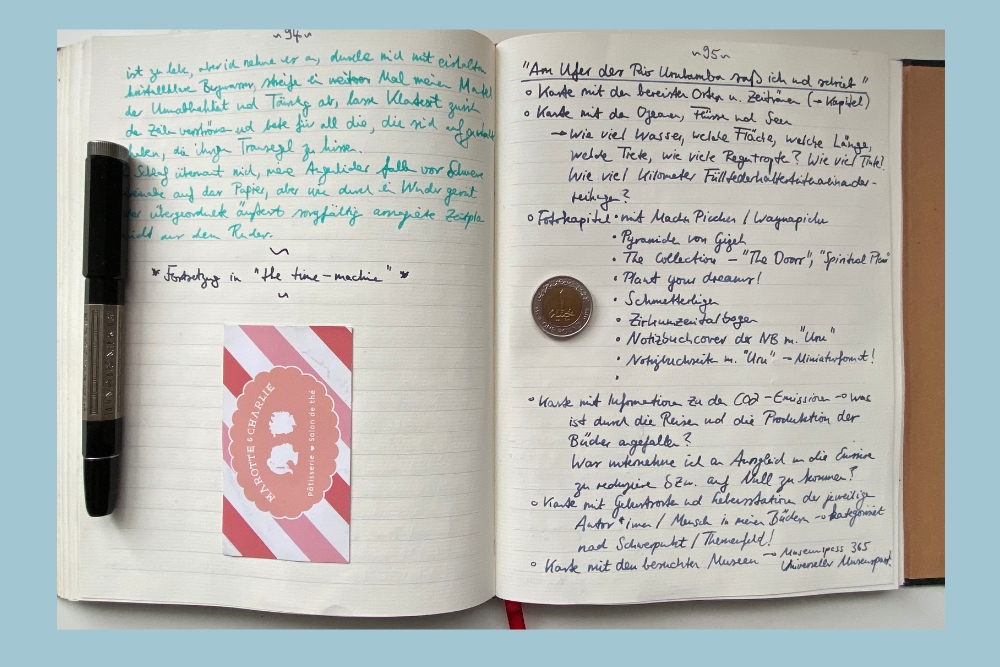 ~94~
ist zu lese, aber ich nehme es an, dusche mich mit eiskaltem
kristallklare Bergwasser, streife ein weiteres Mal meinen Mantel
der Unnahbarkeit und ab, lasse Klartext zwischen
de Zeile und bete für all die, die sich
haben, die ihrigen zu hissen.
Schlaf übermannt mich, meine Augenlider falle vor Schwere
auf das Papier, aber wie durch ein Wunder gerät
übergeordnete äußerst sorgfältig Zeitplan
nicht aus dem Ruder.
~
* Fortsetzung in "the time-machine" *
~
MAROTTE & CHARLIE
Pâtisserie ♥ Salon de thé
~95~
"Am Ufer des Rio Urubamba saß ich und schrieb"
• Karte mit den bereisten Orten u. Zeiträumen (→ Kapitel)
• Karte mit den Ozeanen, Flüssen und Seen
→ Wie viel Wasser, welche Fläche, welche Länge,
welche Tiefe, wie viele Regentropfe? Wie viel Tinte?
Wie viel Kilometer Füllfederhalterstücheaneinander-
reihungen?
• Fotokapitel • mit Machu Picchu / Waynapichu
• Pyramide von Gizeh
• The Collection – "The Doors", "Spiritual Plan"
• Plant your dreams!
• Schmetterlinge
• Zirkumzenitalbogen
• Notizbuchcover des NB m. "Uru"
• Notizbuchseite m. "Uru" – Miniaturformat!
•
• Karte mit Informationen zu den CO2-Emissionen → was
ist durch die Reisen und die Produktion der
Bücher angefallen?
Was unternehme ich an Ausgleich um die Emissionen
zu reduziere bzw. auf Null zu kommen?
• Karte mit Geburtsorte und Lebensstation der jeweilige
Autor*innen / Mensch in meinen Büchern → kategorisiert
nach Schwerpunkt / Themenfeld!
• Karte mit den besuchten Museen → Museumspass 365
Universeller Museumspass